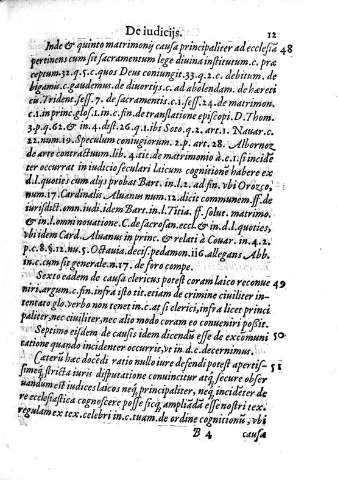 De iudicijs. 12
Inde & quinto matrimonij causa principaliter ad ecclesiā 48
pertinens cum sit sacramentum lege diuina institutum. c. præ
ceptum. 32. q. 5. c. quos Deus coniungit. 33. q. 2. c. debitum. de
bigamis. c. gaudemus. de diuortijs. c. ad abolendam. de hæreti
cis. Trident. sess. 7. de sacramentis. c. 1. sess. 24. de matrimon.
c. 1. in princ. glos. 1. in c. fin. de translatione episcopi. D. Thom.
3. p. q. 62. & in 4. dist. 26. q. 1. ibi Soto. q. 2. art. 1. Nauar. c.
22. num. 19. Speculum coniugiorum. 2. p. art. 28. Albornoz
de arte contractuum. lib. 4. tit. de matrimonio à c. 1. si incidē
ter occurrat in iudicio seculari laicum cognitionē habere ex
d. l. quoties cum alijs probat Bart. in l. 2. ad fin. vbi Orozco,
num. 17. Cardinalis Aluanus num. 12. dicit communem. ff. de
iurisdict. om. iudi. idem Bart. in l. Titia. ff. solut. matrimo.
& in l. omni nouatione. C. de sacrosan. eccl. & in d. l. quoties,
vbi idem Card. Aluanus in princ. & relati à Couar. in 4. 2.
p. c. 8. §. 12. nu. 5. Octauia. decis. pedamon. 116. allegans Abb.
in c. cum sit generale. n. 17. de foro compe.
Sexto eadem de causa clericus potest coram laico reconue 49
niri. argum. c. fin. infra isto tit. etiam de crimine ciuiliter in-
tentato glo. verbo non tenet in c. at si clerici, infra licet princi
paliter, nec ciuiliter, nec alio modo coram eo conueniri possit.
Septimo eisdem de causis idem dicendū esse de excomuni 50
tatione quando incidenter occurrit, vt in d. c. decernimus.
Cæterū hac docēdi ratio nullo iure defendi potest apertis- 51
simeq; stricta iuris disputatione conuincitur atq; secure obser
uandum est iudices laicos neq; principaliter, neq; incidēter de
re ecclesiastica cognoscere posse sicq; ampliādā esse nostri tex.
regulam ex tex. celebri in c. tuam. de ordine cognitionū, vbi
B 4 causa